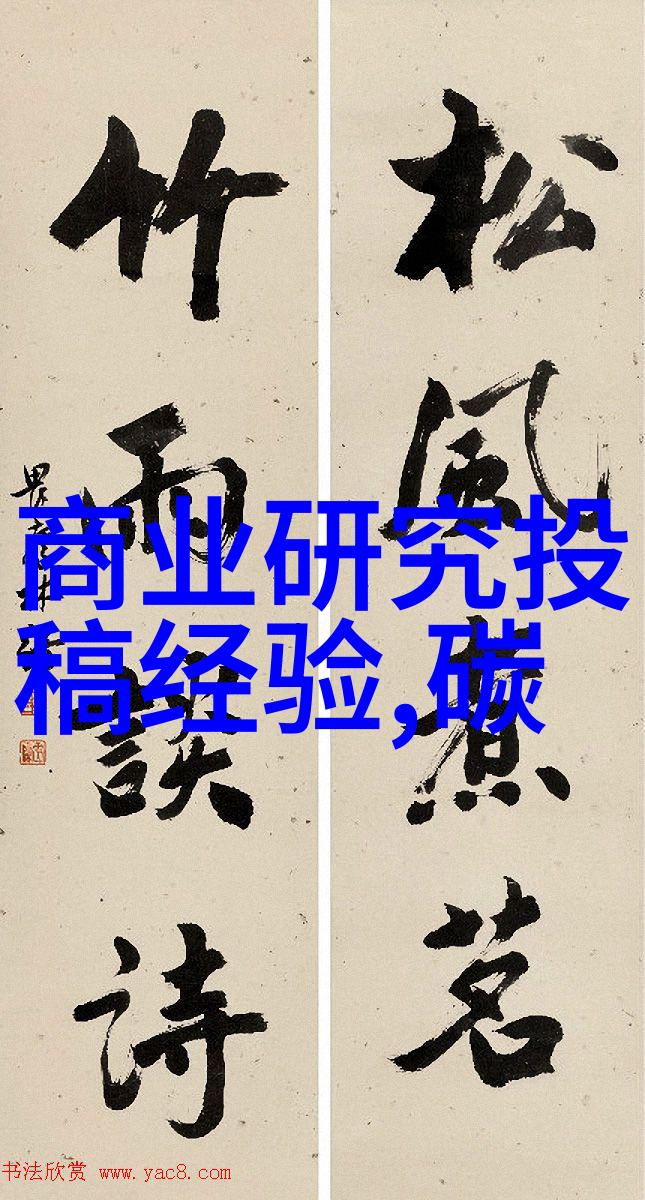 松風煮茗
竹雨談詩
商业研究投
稿经验,碳
书法欣赏 www.yac8.com